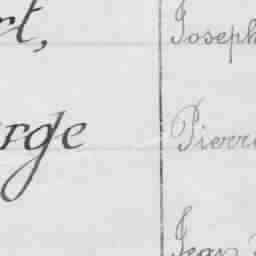 rt,
Joseph
rge
Pierre
Jean